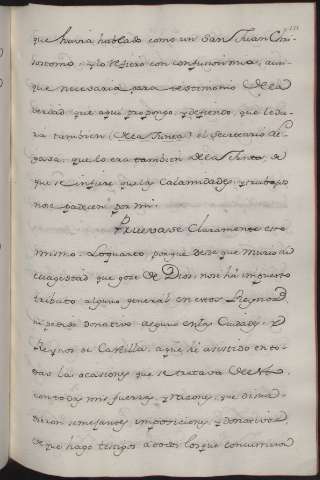 que havia hablado como un San Juan Chri-
sostomo: y lo refiero con confusion mia, aun
que necessaria para testimonio de la
verdad que aqui propongo, y defiendo, que le di-
ra tambien (de la Junta) el secretario de
que lo era tambien de la Junta, de
que se infiere que las Calamidades, y trabajos
no se padecen por mi.
Pruevasse Claramente esto
mismo. Lo quarto, porque desde que murio su
Magestad, que goze de Dios, no se ha impuesto
tributo alguno general en estos Reynos,
ni pedido donativo alguno en las Ciudades, y
Reynos de Castilla, a que hè asistido en to-
das las ocasiones que se tratava de ello,
con todas mis fuerzas, y razones, que se impi-
diessen semejantes imposiciones, y donativos,
de que hago testigos a todos los que concurrieron